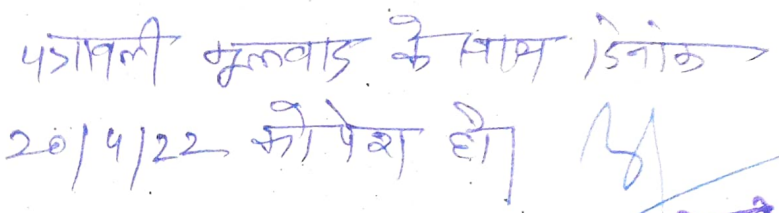 पत्रावली मूलवाद के साथ दिनांक
20/4/22 को पेश हो।